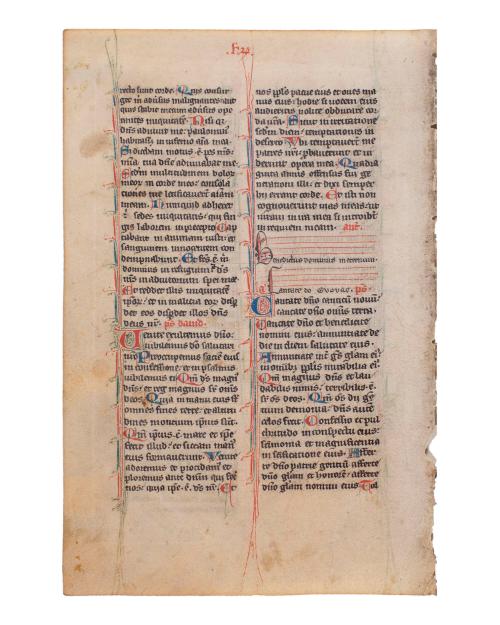 recti sunt corde. Quis consur
get m̄ adūsus malignantes. aut
quis stabit mecum adūsus ope
rantes iniquitatē. Nisi qr̄
dn̄s adiuuit me. paulominꝰ
habitass; in inferno aīa mea.
Si dicebam motus ē pes mꝰ.
mīa tua dn̄e adiuuabat me.
Sc̄dm multitudinem dolor
meoꝝ in corde meo. consola
tiones tue letificauerūt aīam
meam. Nunquid adheret
t̄ sedes iniquitatis. qui fin
gis laborem in precepto. Cap
tabunt in animam iusti. et
sanguinem innocentem con
dempnabunt. Et fc̄s ē m̄
dominus in refugiū. ⁊ dꝰs
mꝰ in adiutorium spei mee.
Et reddet illis iniquitatē
ipoꝝ. et in malicia eoꝝ disp
det eos. disperdet illos dn̄s
deus nr̄. ps̄ dauid.
Uenite exultemus dn̄o.
iubilemus dō salutari
nr̄o. Preoccupemus faciē eiꝰ
in confessione. et in psalmis
iubilemus ei. Qm̄ dꝰs magnꝰ
dn̄s. et rex magnus sr̄ omn̄s
deos. Quia in manu eius st̄
omnes fines terre. et altitu
dines montium ipsius st̄.
Qm̄ ipsius ē mare et ipse
fecit illud. et siccam manꝰ
eius formauerunt. Venite
adoremus et procidamꝰ et
ploremus ante dn̄m qui fec̄
nos. quia ipse ē dn̄s nr̄. Et
nos ppl̄s pascue eius et oues ma
nus eius. hodie si uocem eius
audieritis nolite obdurare cor
da ur̄a. Sicut in irritatione
sc̄dm diem temptationis in
deserto. Ubi temptauert̄ me
patres ur̄i. pbauerunt et ui
derunt opera mea. Quadra
ginta annis offensus fui ge
nerationi illi. et dixi semper
hi errant corde. Et isti non
cognouerunt uias meas. ut
iuraui in ira mea si introibt̄
in requiem meam. ant.
Benedictus dominus in eternum.
Cantate dn̄o canticū nouū.
cantate dn̄o omnis terra.
Cantate dn̄o et benedicite
nomini eius. annuntiate de
die in diem salutare eius.
Annuntiate int̄ gn̄s glam eiꝰ
in omnibꝫ ppl̄is mirabilia eiꝰ
Qm̄ magnus dn̄s et lau
dabilis nimis. terribilis ē
sr̄ om̄s deos. Qm̄ om̄s dii gn̄
tium demonia. dn̄s autē
celos fecit. Confessio et pul
chritudo in conspectu eius.
sc̄imonia et magnificentia
in sc̄ificatione eius. Affer
te dn̄o patrie gentiū. afferte
dn̄o glam et honorē. afferte
dn̄o glam nomini eius. Tol